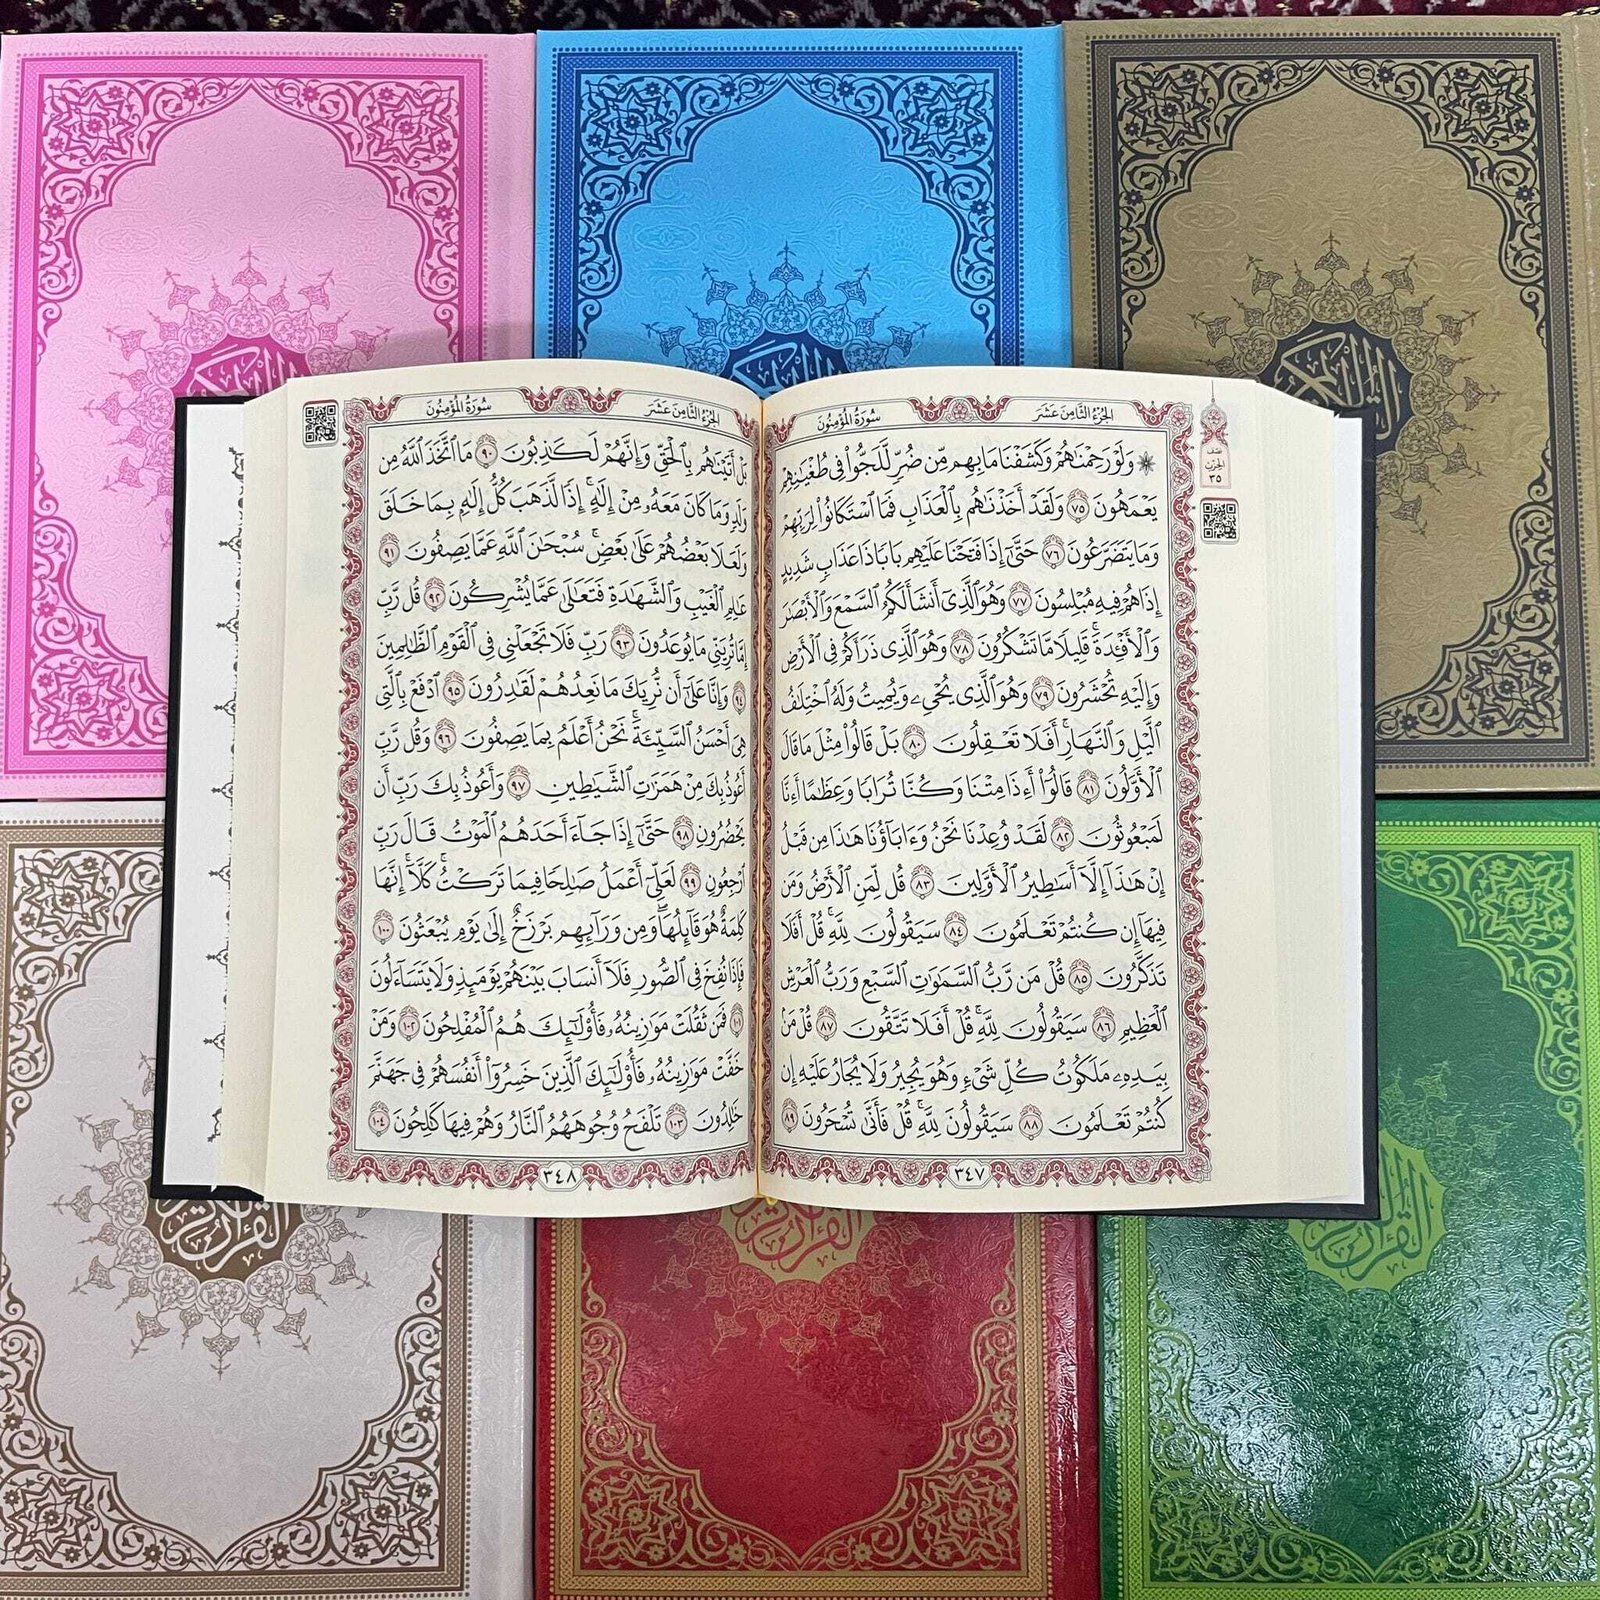 الجزء الثامن عشر
سورة المؤمنون
۞ وَلَوْ رَحِمْنَٰهُمْ وَكَشَفْنَا مَا بِهِم مِّن ضُرٍّ لَّلَجُّوا۟ فِى طُغْيَٰنِهِمْ
يَعْمَهُونَ ٧٥ وَلَقَدْ أَخَذْنَٰهُم بِٱلْعَذَابِ فَمَا ٱسْتَكَانُوا۟ لِرَبِّهِمْ
وَمَا يَتَضَرَّعُونَ ٧٦ حَتَّىٰٓ إِذَا فَتَحْنَا عَلَيْهِم بَابًا ذَا عَذَابٍ شَدِيدٍ
إِذَا هُمْ فِيهِ مُبْلِسُونَ ٧٧ وَهُوَ ٱلَّذِىٓ أَنشَأَ لَكُمُ ٱلسَّمْعَ وَٱلْأَبْصَٰرَ
وَٱلْأَفْـِٔدَةَ ۚ قَلِيلًا مَّا تَشْكُرُونَ ٧٨ وَهُوَ ٱلَّذِى ذَرَأَكُمْ فِى ٱلْأَرْضِ
وَإِلَيْهِ تُحْشَرُونَ ٧٩ وَهُوَ ٱلَّذِى يُحْىِۦ وَيُمِيتُ وَلَهُ ٱخْتِلَٰفُ
ٱلَّيْلِ وَٱلنَّهَارِ ۚ أَفَلَا تَعْقِلُونَ ٨٠ بَلْ قَالُوا۟ مِثْلَ مَا قَالَ
ٱلْأَوَّلُونَ ٨١ قَالُوٓا۟ أَءِذَا مِتْنَا وَكُنَّا تُرَابًا وَعِظَٰمًا أَءِنَّا
لَمَبْعُوثُونَ ٨٢ لَقَدْ وُعِدْنَا نَحْنُ وَءَابَآؤُنَا هَٰذَا مِن قَبْلُ
إِنْ هَٰذَآ إِلَّآ أَسَٰطِيرُ ٱلْأَوَّلِينَ ٨٣ قُل لِّمَنِ ٱلْأَرْضُ وَمَن
فِيهَآ إِن كُنتُمْ تَعْلَمُونَ ٨٤ سَيَقُولُونَ لِلَّهِ ۚ قُلْ أَفَلَا
تَذَكَّرُونَ ٨٥ قُلْ مَن رَّبُّ ٱلسَّمَٰوَٰتِ ٱلسَّبْعِ وَرَبُّ ٱلْعَرْشِ
ٱلْعَظِيمِ ٨٦ سَيَقُولُونَ لِلَّهِ ۚ قُلْ أَفَلَا تَتَّقُونَ ٨٧ قُلْ مَنۢ
بِيَدِهِۦ مَلَكُوتُ كُلِّ شَىْءٍ وَهُوَ يُجِيرُ وَلَا يُجَارُ عَلَيْهِ إِن
كُنتُمْ تَعْلَمُونَ ٨٨ سَيَقُولُونَ لِلَّهِ ۚ قُلْ فَأَنَّىٰ تُسْحَرُونَ ٨٩
٣٤٧
نصف
الحزب
٣٥
الجزء الثامن عشر
سورة المؤمنون
بَلْ أَتَيْنَٰهُم بِٱلْحَقِّ وَإِنَّهُمْ لَكَٰذِبُونَ ٩٠ مَا ٱتَّخَذَ ٱللَّهُ مِن
وَلَدٍ وَمَا كَانَ مَعَهُۥ مِنْ إِلَٰهٍ ۚ إِذًا لَّذَهَبَ كُلُّ إِلَٰهٍۭ بِمَا خَلَقَ
وَلَعَلَا بَعْضُهُمْ عَلَىٰ بَعْضٍ ۚ سُبْحَٰنَ ٱللَّهِ عَمَّا يَصِفُونَ ٩١
عَٰلِمِ ٱلْغَيْبِ وَٱلشَّهَٰدَةِ فَتَعَٰلَىٰ عَمَّا يُشْرِكُونَ ٩٢ قُل رَّبِّ
إِمَّا تُرِيَنِّى مَا يُوعَدُونَ ٩٣ رَبِّ فَلَا تَجْعَلْنِى فِى ٱلْقَوْمِ ٱلظَّٰلِمِينَ
٩٤ وَإِنَّا عَلَىٰٓ أَن نُّرِيَكَ مَا نَعِدُهُمْ لَقَٰدِرُونَ ٩٥ ٱدْفَعْ بِٱلَّتِى
هِىَ أَحْسَنُ ٱلسَّيِّئَةَ ۚ نَحْنُ أَعْلَمُ بِمَا يَصِفُونَ ٩٦ وَقُل رَّبِّ
أَعُوذُ بِكَ مِنْ هَمَزَٰتِ ٱلشَّيَٰطِينِ ٩٧ وَأَعُوذُ بِكَ رَبِّ أَن
يَحْضُرُونِ ٩٨ حَتَّىٰٓ إِذَا جَآءَ أَحَدَهُمُ ٱلْمَوْتُ قَالَ رَبِّ
ٱرْجِعُونِ ٩٩ لَعَلِّىٓ أَعْمَلُ صَٰلِحًا فِيمَا تَرَكْتُ ۚ كَلَّآ ۚ إِنَّهَا
كَلِمَةٌ هُوَ قَآئِلُهَا ۖ وَمِن وَرَآئِهِم بَرْزَخٌ إِلَىٰ يَوْمِ يُبْعَثُونَ ١٠٠
فَإِذَا نُفِخَ فِى ٱلصُّورِ فَلَآ أَنسَابَ بَيْنَهُمْ يَوْمَئِذٍ وَلَا يَتَسَآءَلُونَ
١٠١ فَمَن ثَقُلَتْ مَوَٰزِينُهُۥ فَأُو۟لَٰٓئِكَ هُمُ ٱلْمُفْلِحُونَ ١٠٢ وَمَنْ
خَفَّتْ مَوَٰزِينُهُۥ فَأُو۟لَٰٓئِكَ ٱلَّذِينَ خَسِرُوٓا۟ أَنفُسَهُمْ فِى جَهَنَّمَ
خَٰلِدُونَ ١٠٣ تَلْفَحُ وُجُوهَهُمُ ٱلنَّارُ وَهُمْ فِيهَا كَٰلِحُونَ ١٠٤
٣٤٨
القرآن
القرآن
القرآن